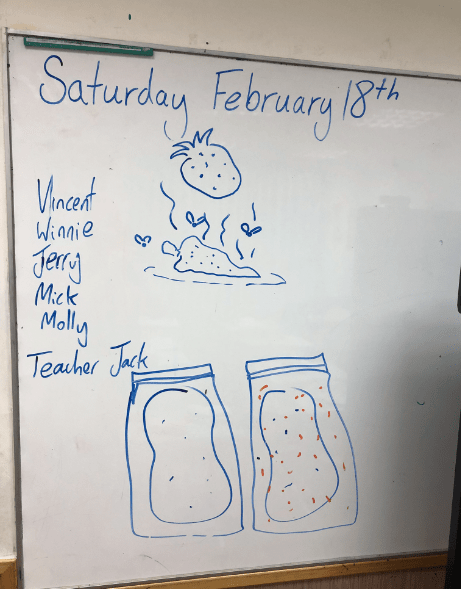 Saturday February 18th
Vincent
Winnie
Jerry
Mick
Molly
Teacher Jack